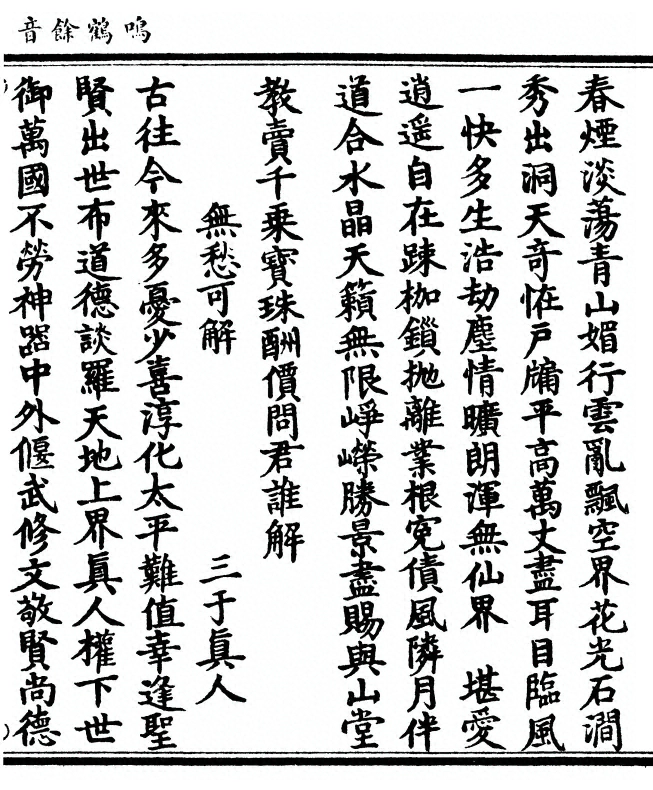 鳴鶴餘音
春煙淡蕩青山媚行雲亂飄空界花光石澗
秀出洞天奇恠戶牖平高萬丈盡耳目臨風
一快多生浩劫塵情曠朗渾無仙界　堪愛
逍遥自在踈枷鎖拋離業根寃債風隣月伴
道合水晶天籟無限崢嶸勝景盡賜與山堂
教賣千乗寶珠酬價問君誰解
無愁可解　三于眞人
古往今來多憂少喜淳化太平難值幸逢聖
賢出世布道德談羅天地上界眞人權下世
御萬國不勞神器中外偃武修文敬賢尚德